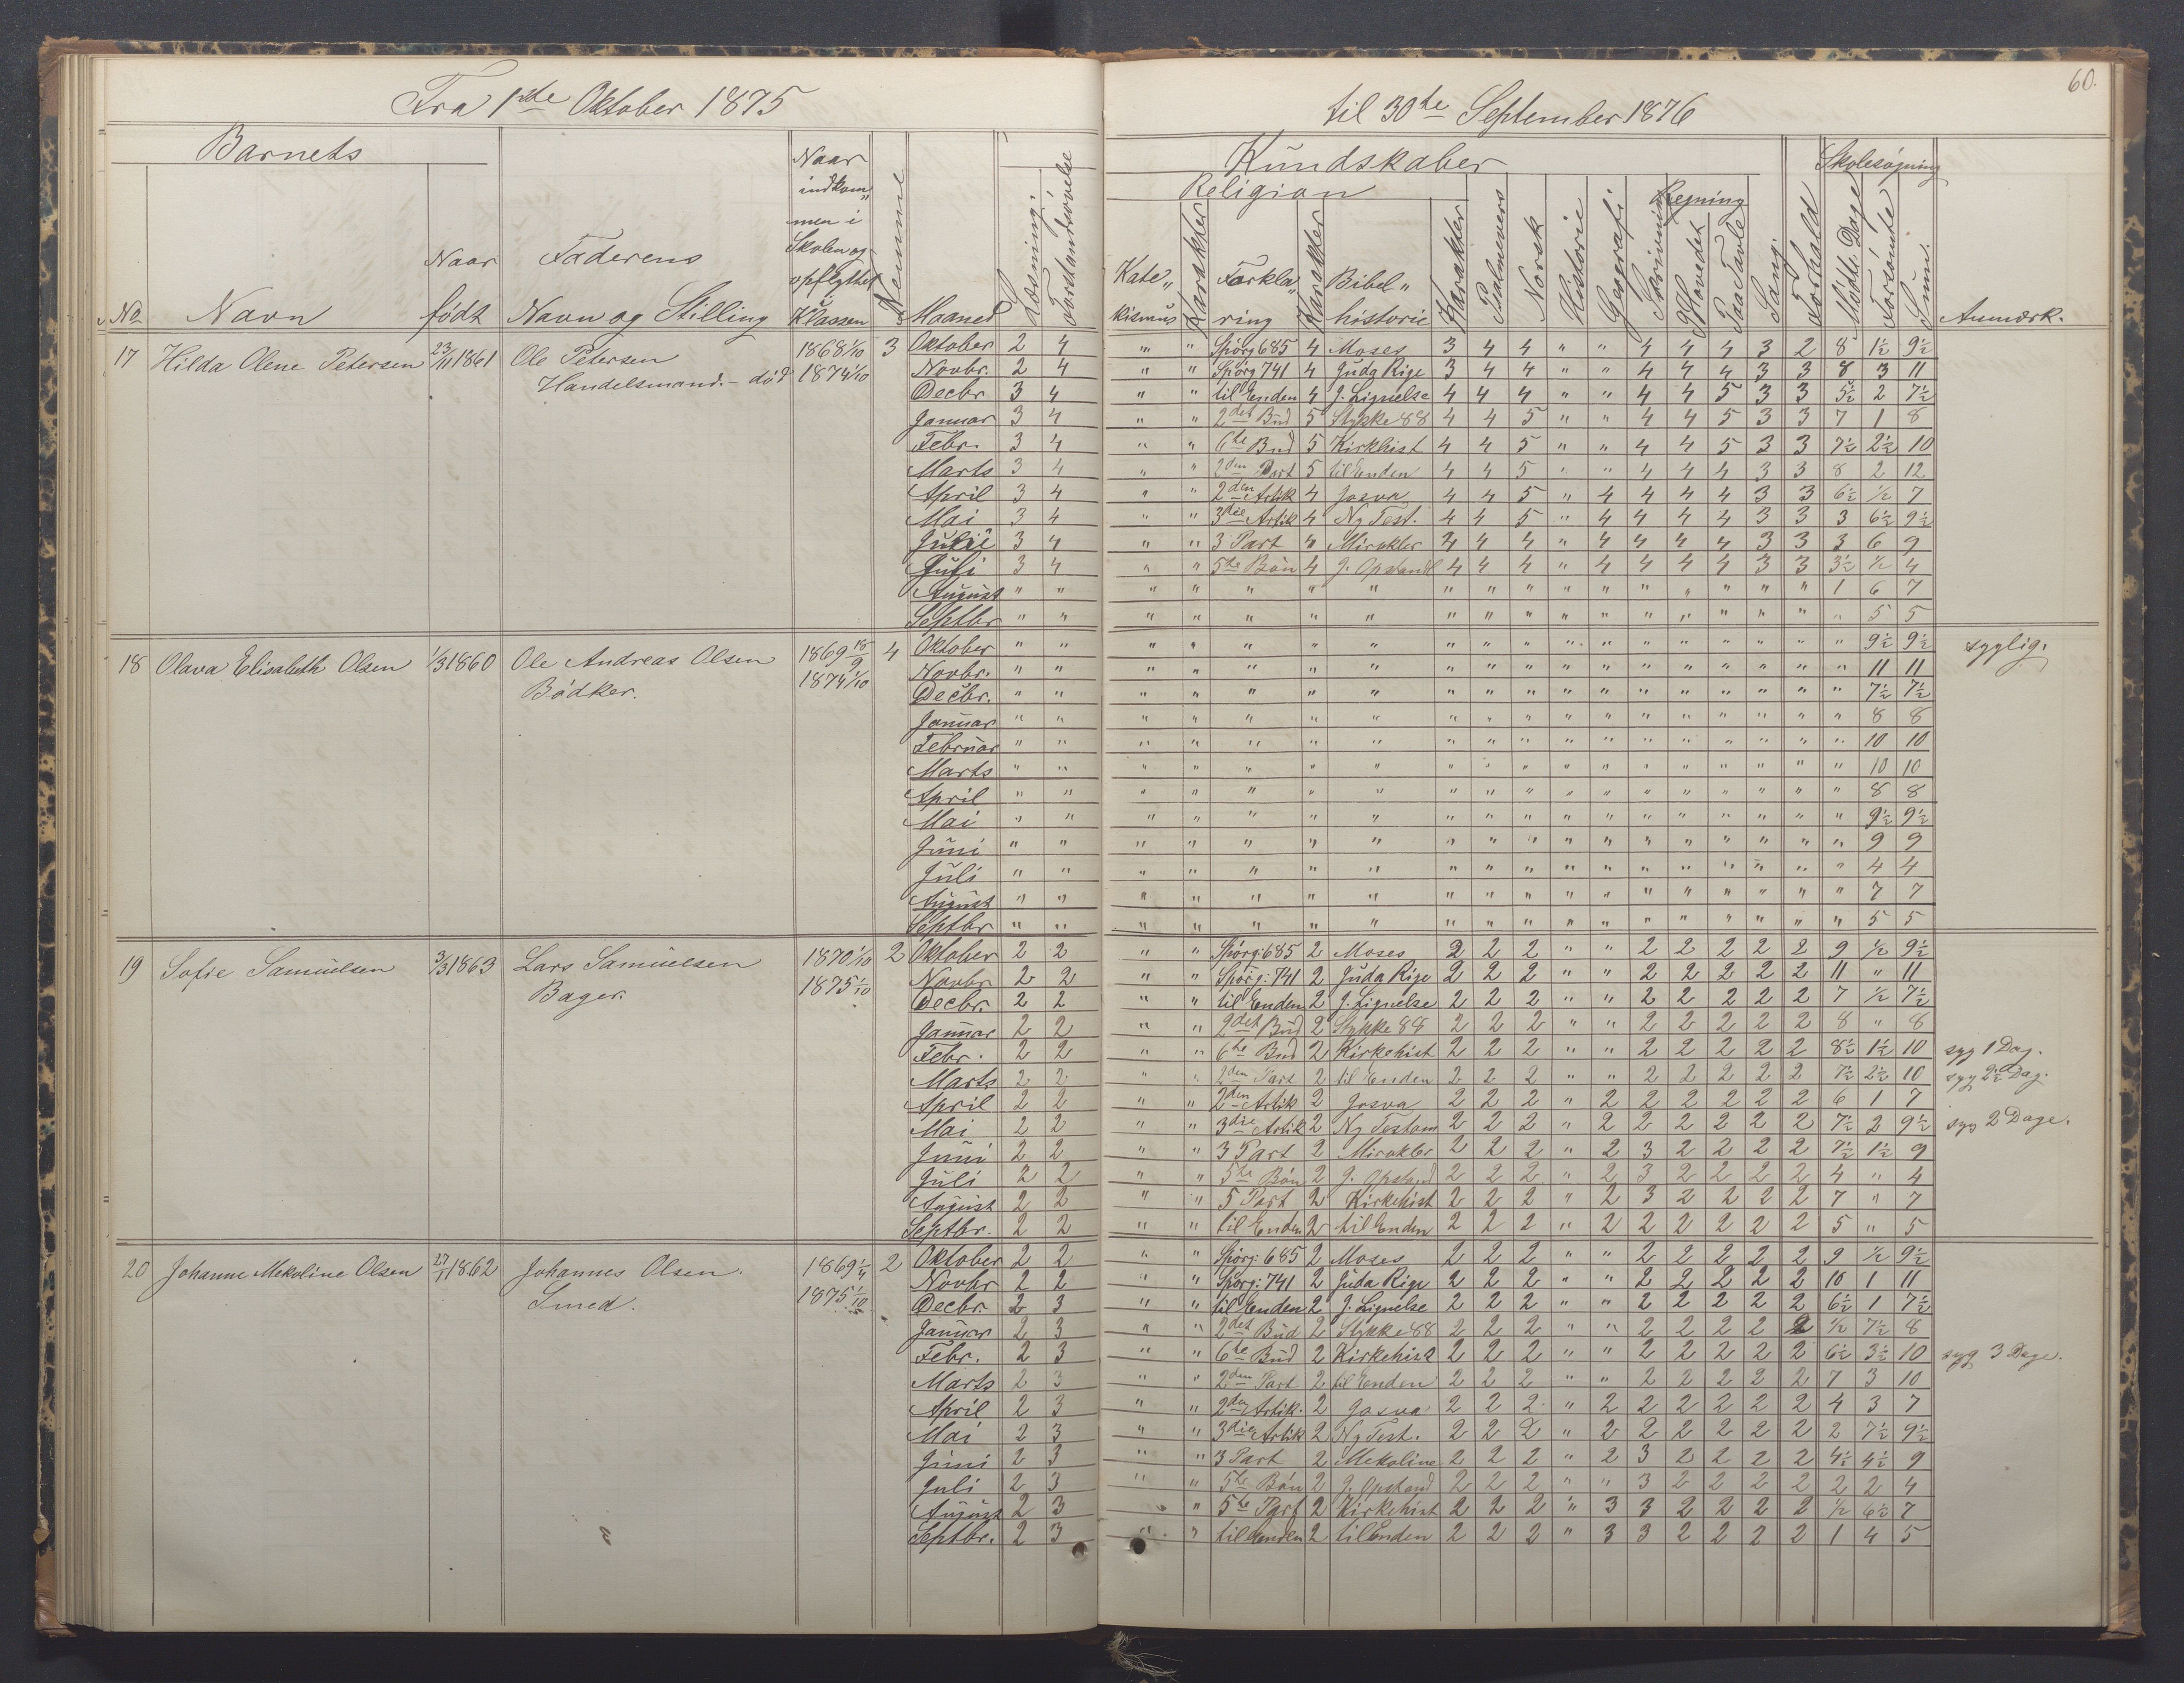 Fra 1ste Oktober 1875
til 30te September 1876
60.
Barnets
No
Navn
Naar født
Faderens Navn og Stilling
Naar indkom„men i Skolen og opflyttet i Klassen
Nummer
Maaned
Læsning.
Forstandsøvelse
Kundskaber
Religion
Kate„kismus
Karakter
Forkla„ring
Karakter
Bibel„historie
Karakter
Psalmevers
Norsk
Historie
Geografi
Skrivning
Regning
I Hovedet
Paa Tavle
Sang.
Forhold
Skolesøgning
Mødte Dage
Forsømte
Sum.
Anmærk.
17 Hilda Olene Petersen 23/11 1861 Ole Petersen 1868 1/10 3 Oktober 2 4 „ „ Spörg 685 4 Moses 3 4 4 „ „ 4 4 4 3 2 8 1½ 9½
Handelsmand. - död 1874 1/10 Novbr. 2 4 „ „ Spörg 741 4 Juda Rige 3 4 4 „ „ 4 4 4 3 3 8 3 11
Decbr 3 4 „ „ til Enden 4 J. Lignelse 4 4 4 „ „ 4 4 5 3 3 5½ 2 7½
Januar 3 4 „ „ 2det Bud 5 Stykke 88 4 4 5 „ „ 4 4 5 3 3 7 1 8
Febr. 3 4 „ „ 6te Bud 5 Kirkhist 4 4 5 „ „ 4 4 5 3 3 7½ 2½ 10
Marts 3 4 „ „ 2den Part 5 til Enden 4 4 5 „ „ 4 4 4 3 3 8 2 12
April 3 4 „ „ 2den Artik 4 Josva 4 4 5 „ 4 4 4 4 3 3 6½ ½ 7
Mai 3 4 „ „ 3die Artik 4 Ny Test. 4 4 5 „ 4 4 4 4 3 3 3 6½ 9½
Juni 3 4 „ „ 3 Part 4 Mirakler 4 4 4 „ 4 4 4 4 3 3 3 6 9
Juli 3 4 „ „ 5te Bön 4 J. Opstand 4 4 4 „ 4 4 4 4 3 3 3½ ½ 4
August „ „ „ „ „ „ „ „ „ „ „ „ „ „ „ „ „ 1 6 7
Septbr „ „ „ „ „ „ „ „ „ „ „ „ „ „ „ „ „ „ 5 5
18 Olava Elisabeth Olsen 1/3 1860 Ole Andreas Olsen 1869 15/9 4 Oktober „ „ „ „ „ „ „ „ „ „ „ „ „ „ „ „ „ „ 9½ 9½ syglig.
Bödker. 1874 1/10 Novbr. „ „ „ „ „ „ „ „ „ „ „ „ „ „ „ „ „ „ 11 11
Decbr. „ „ „ „ „ „ „ „ „ „ „ „ „ „ „ „ „ „ 7½ 7½
Januar „ „ „ „ „ „ „ „ „ „ „ „ „ „ „ „ „ „ 8 8
Februar „ „ „ „ „ „ „ „ „ „ „ „ „ „ „ „ „ „ 10 10
Marts „ „ „ „ „ „ „ „ „ „ „ „ „ „ „ „ „ „ 10 10
April „ „ „ „ „ „ „ „ „ „ „ „ „ „ „ „ „ „ 8 8
Mai „ „ „ „ „ „ „ „ „ „ „ „ „ „ „ „ „ „ 9½ 9½
Juni „ „ „ „ „ „ „ „ „ „ „ „ „ „ „ „ „ „ 9 9
Juli „ „ „ „ „ „ „ „ „ „ „ „ „ „ „ „ „ „ 4 4
August „ „ „ „ „ „ „ „ „ „ „ „ „ „ „ „ „ „ 7 7
Septbr „ „ „ „ „ „ „ „ „ „ „ „ „ „ „ „ „ „ 5 5
19 Sofie Samuelsen 3/3 1863 Lars Samuelsen 1870 1/10 2 Oktober 2 2 „ „ Spörg: 685 2 Moses 2 2 2 „ „ 2 2 2 2 2 9 ½ 9½
Bager. 1875 1/10 Novbr 2 2 „ „ Spörg: 741 2 Juda Rige 2 2 2 „ „ 2 2 2 2 2 11 „ 11
Decbr. 2 2 „ „ til Enden 2 J. Lignelse 2 2 2 „ „ 2 2 2 2 2 7 ½ 7½
Januar 2 2 „ „ 2det Bud 2 Stykke 88 2 2 2 „ „ 2 2 2 2 2 8 „ 8
Febr. 2 2 „ „ 6te Bud 2 Kirkehist 2 2 2 „ „ 2 2 2 2 2 8½ 1½ 10 syg 1 Dag.
Marts 2 2 „ „ 2den Part 2 til Enden 2 2 2 „ „ 2 2 2 2 2 7½ 2½ 10 syg 2½ Dag.
April 2 2 „ „ 2den Artik 2 Josva 2 2 2 „ 2 2 2 2 2 2 6 1 7
Mai 2 2 „ „ 3die Artik 2 Ny Testam 2 2 2 „ 2 2 2 2 2 2 7½ 2 9½ syg 2 Dage.
Juni 2 2 „ „ 3 Part 2 Mirakler 2 2 2 „ 2 3 2 2 2 2 7½ 1½ 9
Juli 2 2 „ „ 5te Bön 2 J. Opstand 2 2 2 „ 2 3 2 2 2 2 4 „ 4
August 2 2 „ „ 5 Part 2 Kirkehist 2 2 2 „ 2 3 2 2 2 2 7 „ 7
Septbr. 2 2 „ „ til Enden 2 til Enden 2 2 2 „ 2 2 2 2 2 2 5 „ 5
20 Johanne Mekoline Olsen 27/1 1862 Johannes Olsen. 1869 1/4 2 Oktober 2 2 „ „ Spörg: 685 2 Moses 2 2 2 „ „ 2 2 2 2 2 9 ½ 9½
Smed. 1875 1/10 Novbr 2 2 „ „ Spörg: 741 2 Juda Rige 2 2 2 „ „ 2 2 2 2 2 10 1 11
Decbr. 2 3 „ „ til Enden 2 J. Lignelse 2 2 2 „ „ 2 2 2 2 2 6½ 1 7½
Januar 2 3 „ „ 2det Bud 2 Stykke 88 2 2 2 „ „ 2 2 2 2 2 ½ 7½ 8
Febr. 2 3 „ „ 6te Bud 2 Kirkehist 2 2 2 „ „ 2 2 2 2 2 6½ 3½ 10 syg 3 Dage.
Marts 2 3 „ „ 2den Part 2 til Enden 2 2 2 „ „ 2 2 2 2 2 7 3 10
April 2 3 „ „ 2den Artik. 2 Josva 2 2 2 „ 2 2 2 2 2 2 4 3 7
Mai 2 3 „ „ 3die Artik 2 Ny Test. 2 2 2 „ 2 2 2 2 2 2 2 7½ 9½
Juni 2 3 „ „ 3 Part 2 Mekoline 2 2 2 „ 2 3 2 2 2 2 4½ 4½ 9
Juli 2 3 „ „ 5te Bön 2 J. Opstand 2 2 2 „ „ 3 2 2 2 2 2 2 4
August 2 3 „ „ 5te Part 2 Kirkehist 2 2 2 „ 3 3 2 2 2 2 ½ 6½ 7
Septbr. 2 3 „ „ til Enden 2 til Enden 2 2 2 „ 3 3 2 2 2 2 1 4 5